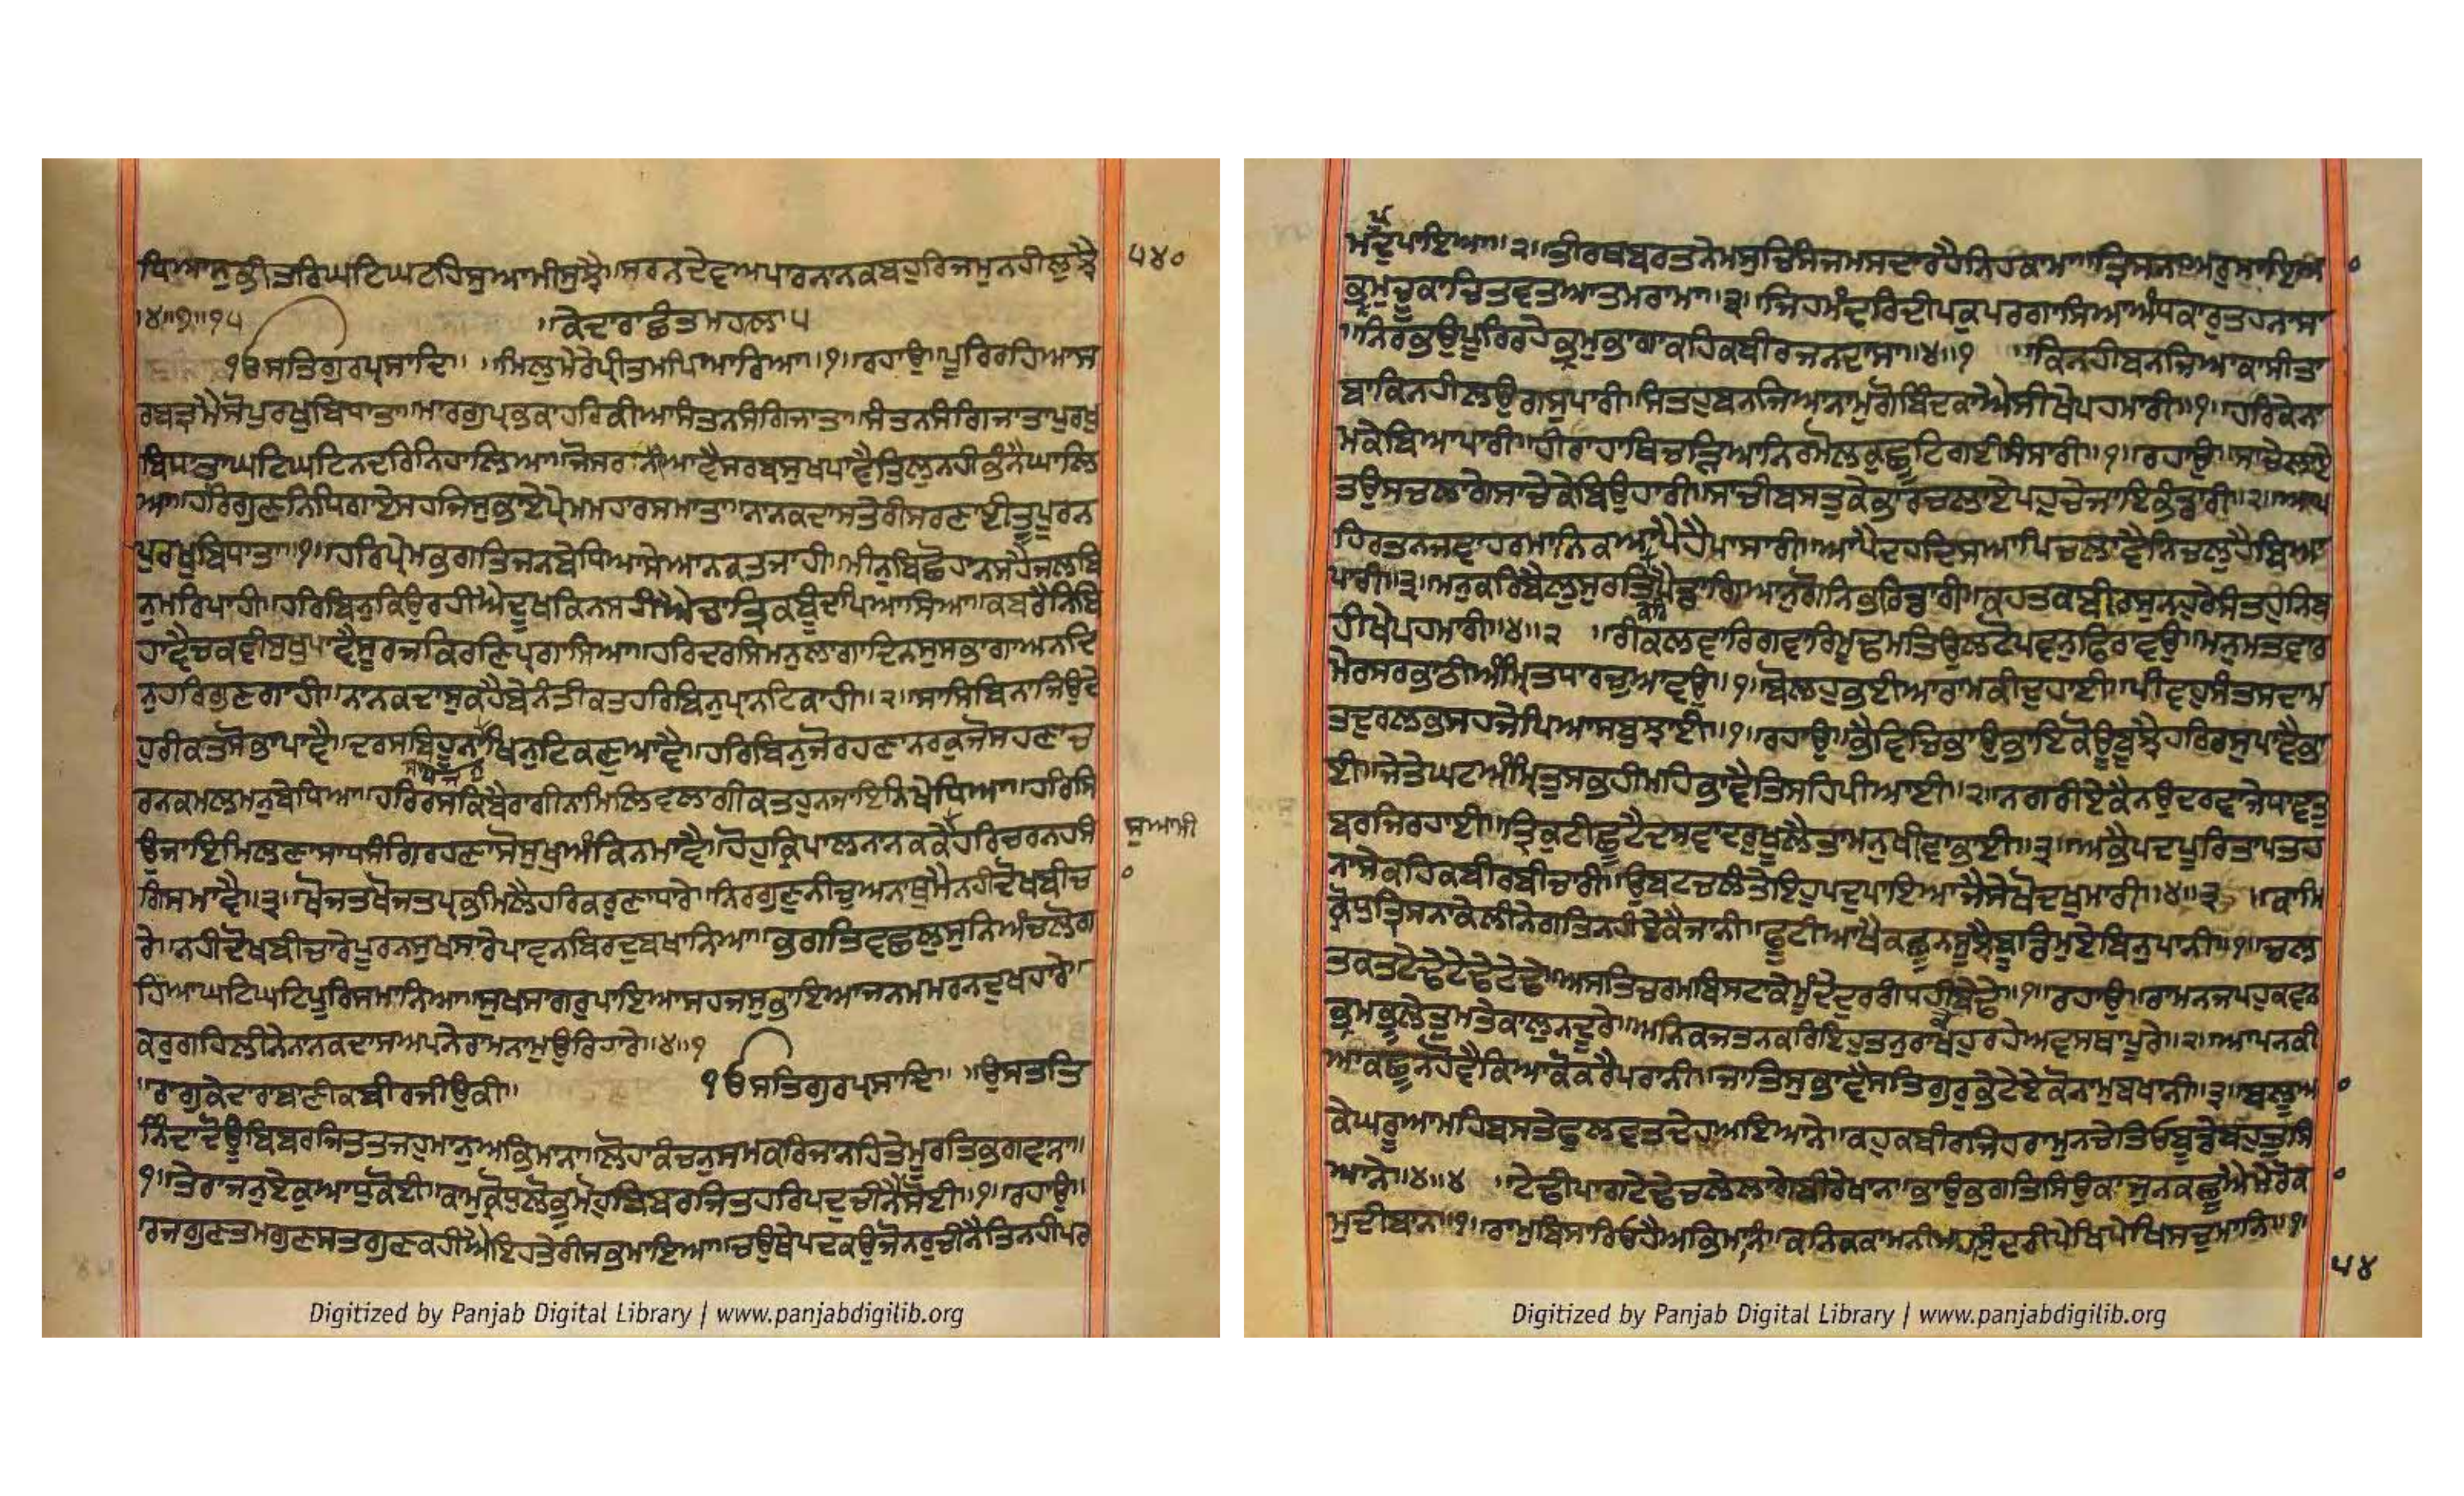 ਧਿਆਨੁਕੀਤਰਿਘਟਿਘਟਹਿਸੁਆਮੀਸੁਝੈ॥ਸਰਨਦੇਵਅਪਾਰਨਾਨਕਬਹੁਰਿਜਮੁਨਹੀਲੁਝੈ ੫੪੦
॥੪॥੧॥੧੫ ॥ਕੇਦਾਰਾਛੰਤਮਹਲਾ੫
੧ਓਸਤਿਗੁਰਪ੍ਰਸਾਦਿ॥ ॥ਮਿਲੁਮੇਰੇਪ੍ਰੀਤਮਪਿਆਰਿਆ॥੧॥ਰਹਾਉ॥ਪੂਰਿਰਹਿਆਸ
ਰਬਤ੍ਰਮੈਸੋਪੁਰਖੁਬਿਧਾਤਾ॥ਮਾਰਗੁਪ੍ਰਭਕਾਹਰਿਕੀਆਸੰਤਨਸੰਗਿਜਾਤਾ॥ਸੰਤਨਸੰਗਿਜਾਤਾਪੁਰਖੁ
ਬਿਧਾਤਾਘਟਿਘਟਿਨਦਰਿਨਿਹਾਲਿਆ॥ਜੋਸਰਨੀਆਵੈਸਰਬਸੁਖਪਾਵੈਤਿਲੁਨਹੀਭੰਨੈਘਾਲਿ
ਆ॥ਹਰਿਗੁਣਨਿਧਿਗਾਏਸਹਜਿਸੁਭਾਏਪ੍ਰੇਮਮਹਾਰਸਮਾਤਾ॥ਨਾਨਕਦਾਸਤੇਰੀਸਰਣਾਈਤੂਪੂਰਨ
ਪੁਰਖੁਬਿਧਾਤਾ॥੧॥ਹਰਿਪ੍ਰੇਮਭਗਤਿਜਨਬੇਧਿਆਸੇਆਨਕਤਜਾਹੀ॥ਮੀਨੁਬਿਛੋਹਾਨਸਹੈਜਲਬਿ
ਨੁਮਰਿਪਾਹੀ॥ਹਰਿਬਿਨੁਕਿਉਰਹੀਐਦੂਖਕਿਨਸਹੀਐਚਾਤ੍ਰਿਕਬੂੰਦਪਿਆਸਿਆ॥ਕਬਰੈਨਿਬਿ
ਹਾਵੈਚਕਵੀਸੁਖੁਪਾਵੈਸੂਰਜਕਿਰਣਿਪ੍ਰਗਾਸਿਆ॥ਹਰਿਦਰਸਿਮਨੁਲਾਗਾਦਿਨਸੁਸਭਾਗਾਅਨਦਿ
ਨੁਹਰਿਗੁਣਗਾਹੀ॥ਨਾਨਕਦਾਸੁਕਹੈਬੇਨੰਤੀਕਤਹਰਿਬਿਨੁਪ੍ਰਾਨਟਿਕਾਹੀ॥੨॥ਸਾਸਿਬਿਨਾਜਿਉਦੇ
ਹੁਰੀਕਤਸੋਭਾਪਾਵੈ॥ਦਰਸਬਿਹੂਨਾਖਿਨੁਟਿਕਣੁਆਵੈ॥ਹਰਿਬਿਨੁਜੋਰਹਣਾਨਰਕਜੋਸਹਣਾਚ
ਰਨਕਮਲਮਨੁਬੇਧਿਆ॥ਹਰਿਰਸਕਿਬੈਰਾਗੀਨਾਮਿਲਿਵਲਾਗੀਕਤਹੁਨਜਾਇਨਿਖੇਧਿਆ॥ਹਰਿਸਿ
ਉਜਾਇਮਿਲਣਾਸਾਧਸੰਗਿਰਹਣਾਸੋਸੁਖੁਅੰਕਿਨਮਾਵੈ॥ਹੋਹੁਕ੍ਰਿਪਾਲਨਾਨਕਕੇਹਰਿਚਰਨਹਸੰ ਸੁਆਮੀ
ਗਿਸਮਾਵੈ॥੩॥ਖੋਜਤਖੋਜਤਪ੍ਰਭਮਿਲੇਹਰਿਕਰੁਣਾਧਾਰੇ॥ਨਿਰਗੁਣੁਨੀਚੁਅਨਾਥੁਮੈਨਹੀਦੋਖਬੀਚ
ਰੇ॥ਨਹੀਦੋਖਬੀਚਾਰੇਪੂਰਨਸੁਖਸਾਰੇਪਾਵਨਬਿਰਦੁਬਖਾਨਿਆ॥ਭਗਤਿਵਛਲੁਸੁਨਿਅੰਚਲੋਗ
ਹਿਆਘਟਿਘਟਿਪੂਰਿਸਮਾਨਿਆ॥ਸੁਖਸਾਗਰੁਪਾਇਆਸਹਜਸੁਭਾਇਆਜਨਮਮਰਨਦੁਖਹਾਰੇ॥
ਕਰੁਗਹਿਲੀਨੇਨਾਨਕਦਾਸਅਪਨੇਰਾਮਨਾਮੁਉਰਿਹਾਰੇ॥੪॥੧
॥ਰਾਗੁਕੇਦਾਰਾਬਾਣੀਕਬੀਰਜੀਉਕੀ॥ ੧ਓਸਤਿਗੁਰਪ੍ਰਸਾਦਿ॥ ॥ਉਸਤਤਿ
ਨਿੰਦਾਦੋਊਬਿਬਰਜਿਤਤਜਹੁਮਾਨੁਅਭਿਮਾਨਾ॥ਲੋਹਾਕੰਚਨੁਸਮਕਰਿਜਾਨਹਿਤੇਮੂਰਤਿਭਗਵਾਨਾ॥
੧॥ਤੇਰਾਜਨੁਏਕੁਆਧੁਕੋਈ॥ਕਾਮੁਕ੍ਰੋਧੁਲੋਭੁਮੋਹੁਬਿਬਰਜਿਤਹਰਿਪਦੁਚੀਨੈਸੋਈ॥੧॥ਰਹਾਉ॥
ਰਜਗੁਣਤਮਗੁਣਸਤਗੁਣਕਹੀਐਇਹਤੇਰੀਸਭਮਾਇਆ॥ਚਉਥੇਪਦਕਉਜੋਨਰੁਚੀਨੈਤਿਨਹੀਪਰ
ਮਪਦੁਪਾਇਆ॥੨॥ਤੀਰਥਬਰਤਨੇਮਸੁਚਿਸੰਜਮਸਦਾਰਹੈਨਿਹਕਾਮਾ॥ਤ੍ਰਿਸਨਾਅਰੁਮਾਇਆ
ਭ੍ਰਮੁਚੂਕਾਚਿਤਵਤਆਤਮਰਾਮਾ॥੩॥ਜਿਹਮੰਦਰਿਦੀਪਕੁਪਰਗਾਸਿਆਅੰਧਕਾਰੁਤਹਨਾਸਾ
॥ਨਿਰਭਉਪੂਰਿਰਹੇਭ੍ਰਮੁਭਾਗਾਕਹਿਕਬੀਰਜਨਦਾਸਾ॥੪॥੧ ॥ਕਿਨਹੀਬਨਜਿਆਕਾਸੀਤਾ
ਬਾਕਿਨਹੀਲਉਗਸੁਪਾਰੀ॥ਸੰਤਹੁਬਨਜਿਆਨਾਮੁਗੋਬਿੰਦਕਾਐਸੀਖੇਪਹਮਾਰੀ॥੧॥ਹਰਿਕੇਨਾ
ਮਕੇਬਿਆਪਾਰੀ॥ਹੀਰਾਹਾਥਿਚੜਿਆਨਿਰਮੋਲਕੁਛੂਟਿਗਈਸੰਸਾਰੀ॥੧॥ਰਹਾਉ॥ਸਾਚੇਲਾਏ
ਤਉਸਚਲਾਗੇਸਾਚੇਕੇਬਿਉਹਾਰੀ॥ਸਾਚੀਬਸਤੁਕੇਭਾਰਚਲਾਏਪਹੁਚੇਜਾਇਭੰਡਾਰੀ॥੨॥ਆਪ
ਹਿਰਤਨਜਵਾਹਰਮਾਨਿਕਆਪੈਹੈਪਾਸਾਰੀ॥ਆਪੈਦਹਦਿਸਆਪਿਚਲਾਵੈਨਿਚਲੁਹੈਬਿਆ
ਪਾਰੀ॥੩॥ਮਨੁਕਰਿਬੈਲੁਸੁਰਤਿਪੈਡਾਗਿਆਨੁਗੋਨਿਭਰਿਡਾਰੀ॥ਕਹਤਕਬੀਰਸੁਨਹੁਰੇਸੰਤਹੁਨਿਬ
ਹੀਖੇਪਹਮਾਰੀ॥੪॥੨ ॥ਰੀਕਲਵਾਰਿਗਵਾਰਿਮੂਢਮਤਿਉਲਟੋਪਵਨੁਫਿਰਾਵਉ॥ਮਨੁਮਤਵਾਰ
ਮੇਰਸਰਭਾਠੀਅੰਮ੍ਰਿਤਧਾਰਚੁਆਵਉ॥੧॥ਬੋਲਹੁਭਈਆਰਾਮਕੀਦੁਹਾਈ॥ਪੀਵਹੁਸੰਤਸਦਾਮ
ਤਦੁਰਲਭਸਹਜੇਪਿਆਸਬੁਝਾਈ॥੧॥ਰਹਾਉ॥ਭੈਵਿਚਿਭਾਉਭਾਇਕੋਊਬੂਝੈਹਰਿਰਸੁਪਾਵੈਭਾ
ਈ॥ਜੇਤੇਘਟਅੰਮ੍ਰਿਤੁਸਭਹੀਮਹਿਭਾਵੈਤਿਸਹਿਪੀਆਈ॥੨॥ਨਗਰੀਏਕੈਨਉਦਰਵਾਜੇਧਾਵਤੁ
ਬਰਜਿਰਹਾਈ॥ਤ੍ਰਿਕੁਟੀਛੂਟੈਦਸਵਾਦਰੁਖੂਲੈਤਾਮਨੁਖੀਵਾਭਾਈ॥੩॥ਅਭੈਪਦਪੂਰਿਤਾਪਤਹ
ਨਾਸੇਕਹਿਕਬੀਰਬੀਚਾਰੀ॥ਉਬਟਚਲੰਤੇਇਹੁਪਦੁਪਾਇਆਜੈਸੇਖੋਦਖੁਮਾਰੀ॥੪॥੩ ॥ਕਾਮਿ
ਕ੍ਰੋਧਤ੍ਰਿਸਨਾਕੇਲੀਨੇਗਤਿਨਹੀਏਕੈਜਾਨੀ॥ਫੂਟੀਆਖੈਕਛੂਨਸੂਝੈਬੂਡਿਮੁਏਬਿਨੁਪਾਨੀ॥੧॥ਚਲ
ਤਕਤਟੇਢੇਟੇਢੇਟੇਢੇ॥ਅਸਤਿਚਰਮਬਿਸਟਾਕੇਮੂੰਦੇਦੁਰਗੰਧਹੀਬੇਢੇ॥੧॥ਰਹਾਉ॥ਰਾਮਨਜਪਹੁਕਵਨ
ਭ੍ਰਮਭੂਲੇਤੁਮਤੇਕਾਲੁਨਦੂਰੇ॥ਅਨਿਕਜਤਨਕਰਿਇਹੁਤਨੁਰਾਖਹੁਰਹੇਅਵਸਥਾਪੂਰੇ॥੨॥ਆਪਨਕੀ
ਆਕਛੂਨਹੋਵੈਕਿਆਕੋਕਰੈਪਰਾਨੀ॥ਜਾਤਿਸੁਭਾਵੈਸਤਿਗੁਰੁਭੇਟੇਏਕੋਨਾਮੁਬਖਾਨੀ॥੩॥ਬਲੂਆ
ਕੇਘਰੂਆਮਹਿਬਸਤੇਫੁਲਵਤਦੇਹਅਇਆਨੇ॥ਕਹੁਕਬੀਰਜਿਹਰਾਮੁਨਚੇਤਿਓਬੂਡੇਬਹੁਤੁਸਿ
ਆਨੇ॥੪॥੪ ॥ਟੇਢੀਪਾਗਟੇਢੇਚਲੇਲਾਗੇਬੀਰੇਖਾਨ॥ਭਾਉਭਗਤਿਸਿਉਕਾਜੁਨਕਛੂਐਮੇਰੋਕਾ
ਮੁਦੀਬਾਨ॥੧॥ਰਾਮੁਬਿਸਾਰਿਓਹੈਅਭਿਮਾਨਿ॥ਕਨਿਕਕਾਮਨੀਮਹਾਸੁੰਦਰੀਪੇਖਿਪੇਖਿਸਚੁਮਾਨਿ॥੧॥
੫੪
Digitized by Panjab Digital Library | www.panjabdigilib.org
Digitized by Panjab Digital Library | www.panjabdigilib.org